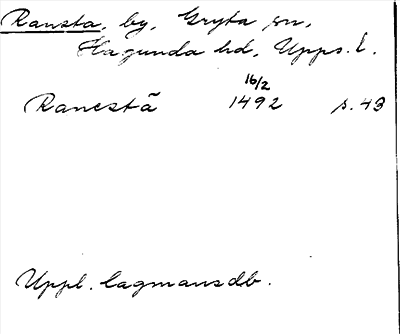 Ransta, by, Gryta sn,
Hagunda hd, Upps. l.
Ranestā 16/2 1492 s. 43
Uppl. lagmansdb.